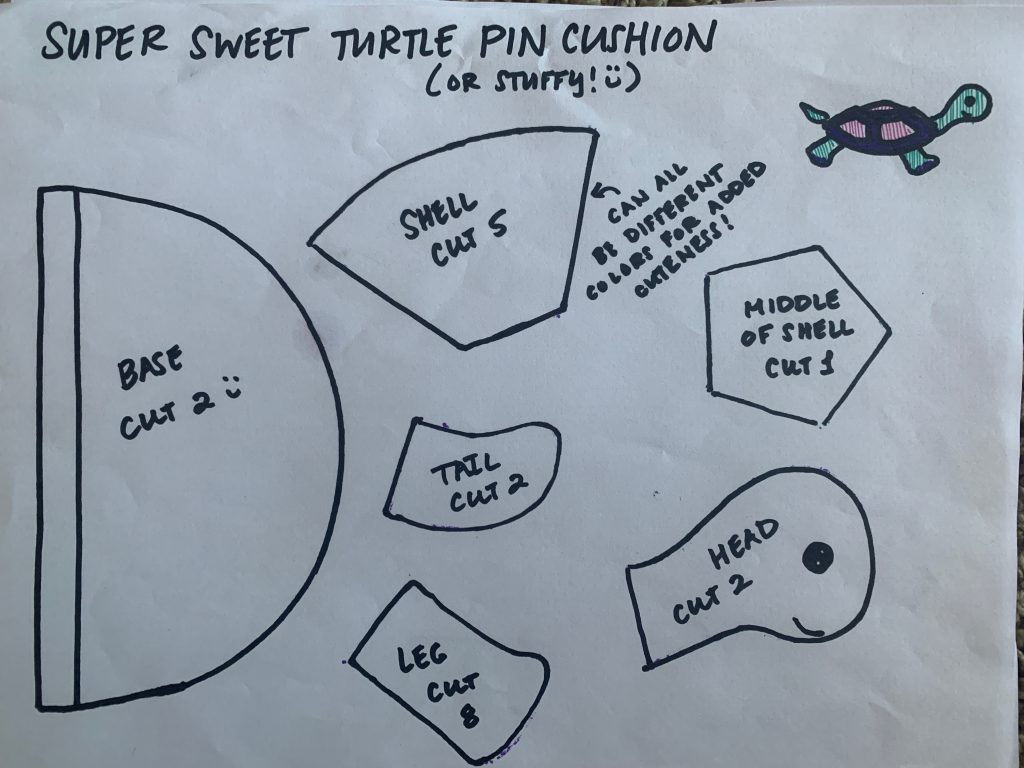 SUPER SWEET TURTLE PIN CUSHION
(OR STUFFY! Ü)
SHELL
CUT 5
CAN ALL
BE DIFFERENT
COLORS FOR ADDED
CUTENESS!
MIDDLE
OF SHELL
CUT 1
BASE
CUT 2 Ü
TAIL
CUT 2
HEAD
CUT 2
LEG
CUT
8